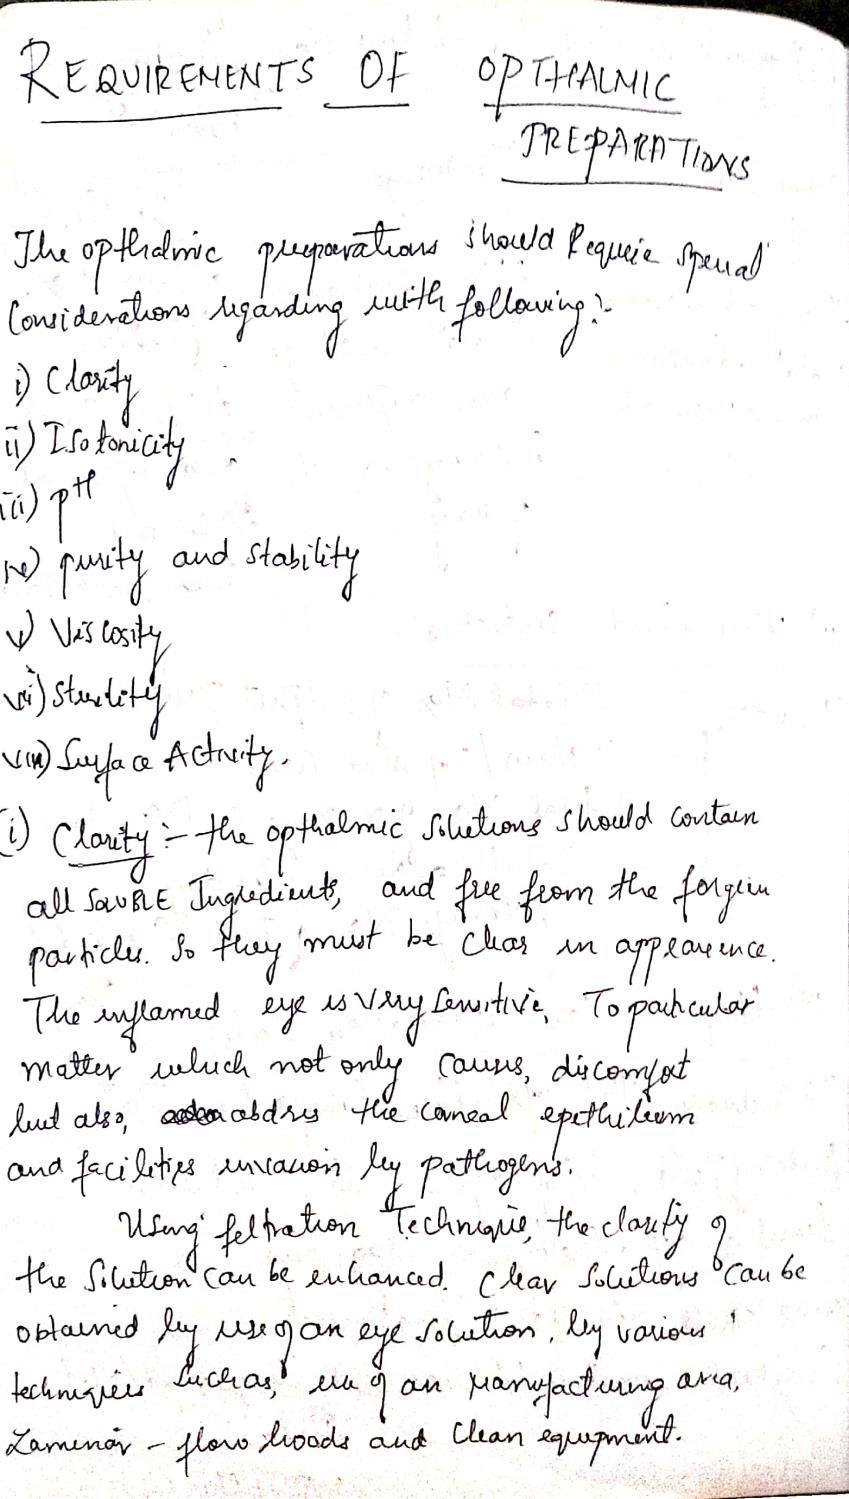 REQUIREMENTS OF OPTHALMIC
PREPARATIONS
The opthalmic preparations should Require special
Considerations regarding with following:-
i) Clarity
ii) Isotonicity
iii) pH
iv) purity and stability
v) Viscosity
vi) Sterility
vii) Surface Activity.
i) Clarity :- the opthalmic solutions should contain
all SOLUBLE Ingredients, and free from the forgein
particles. So they must be clear in appearence.
The inflamed eye is very sensitive, To particular
matter which not only causes, discomfort
but also, abdres the corneal epithilium
and facilities invasion by pathogens.
Using filtration Technique, the clarity of
the solution can be enhanced. Clear solutions can be
obtained by use of an eye solution, by various
techniques such as, use of an manufacturing area,
Laminar - flow hoods and clean equipment.